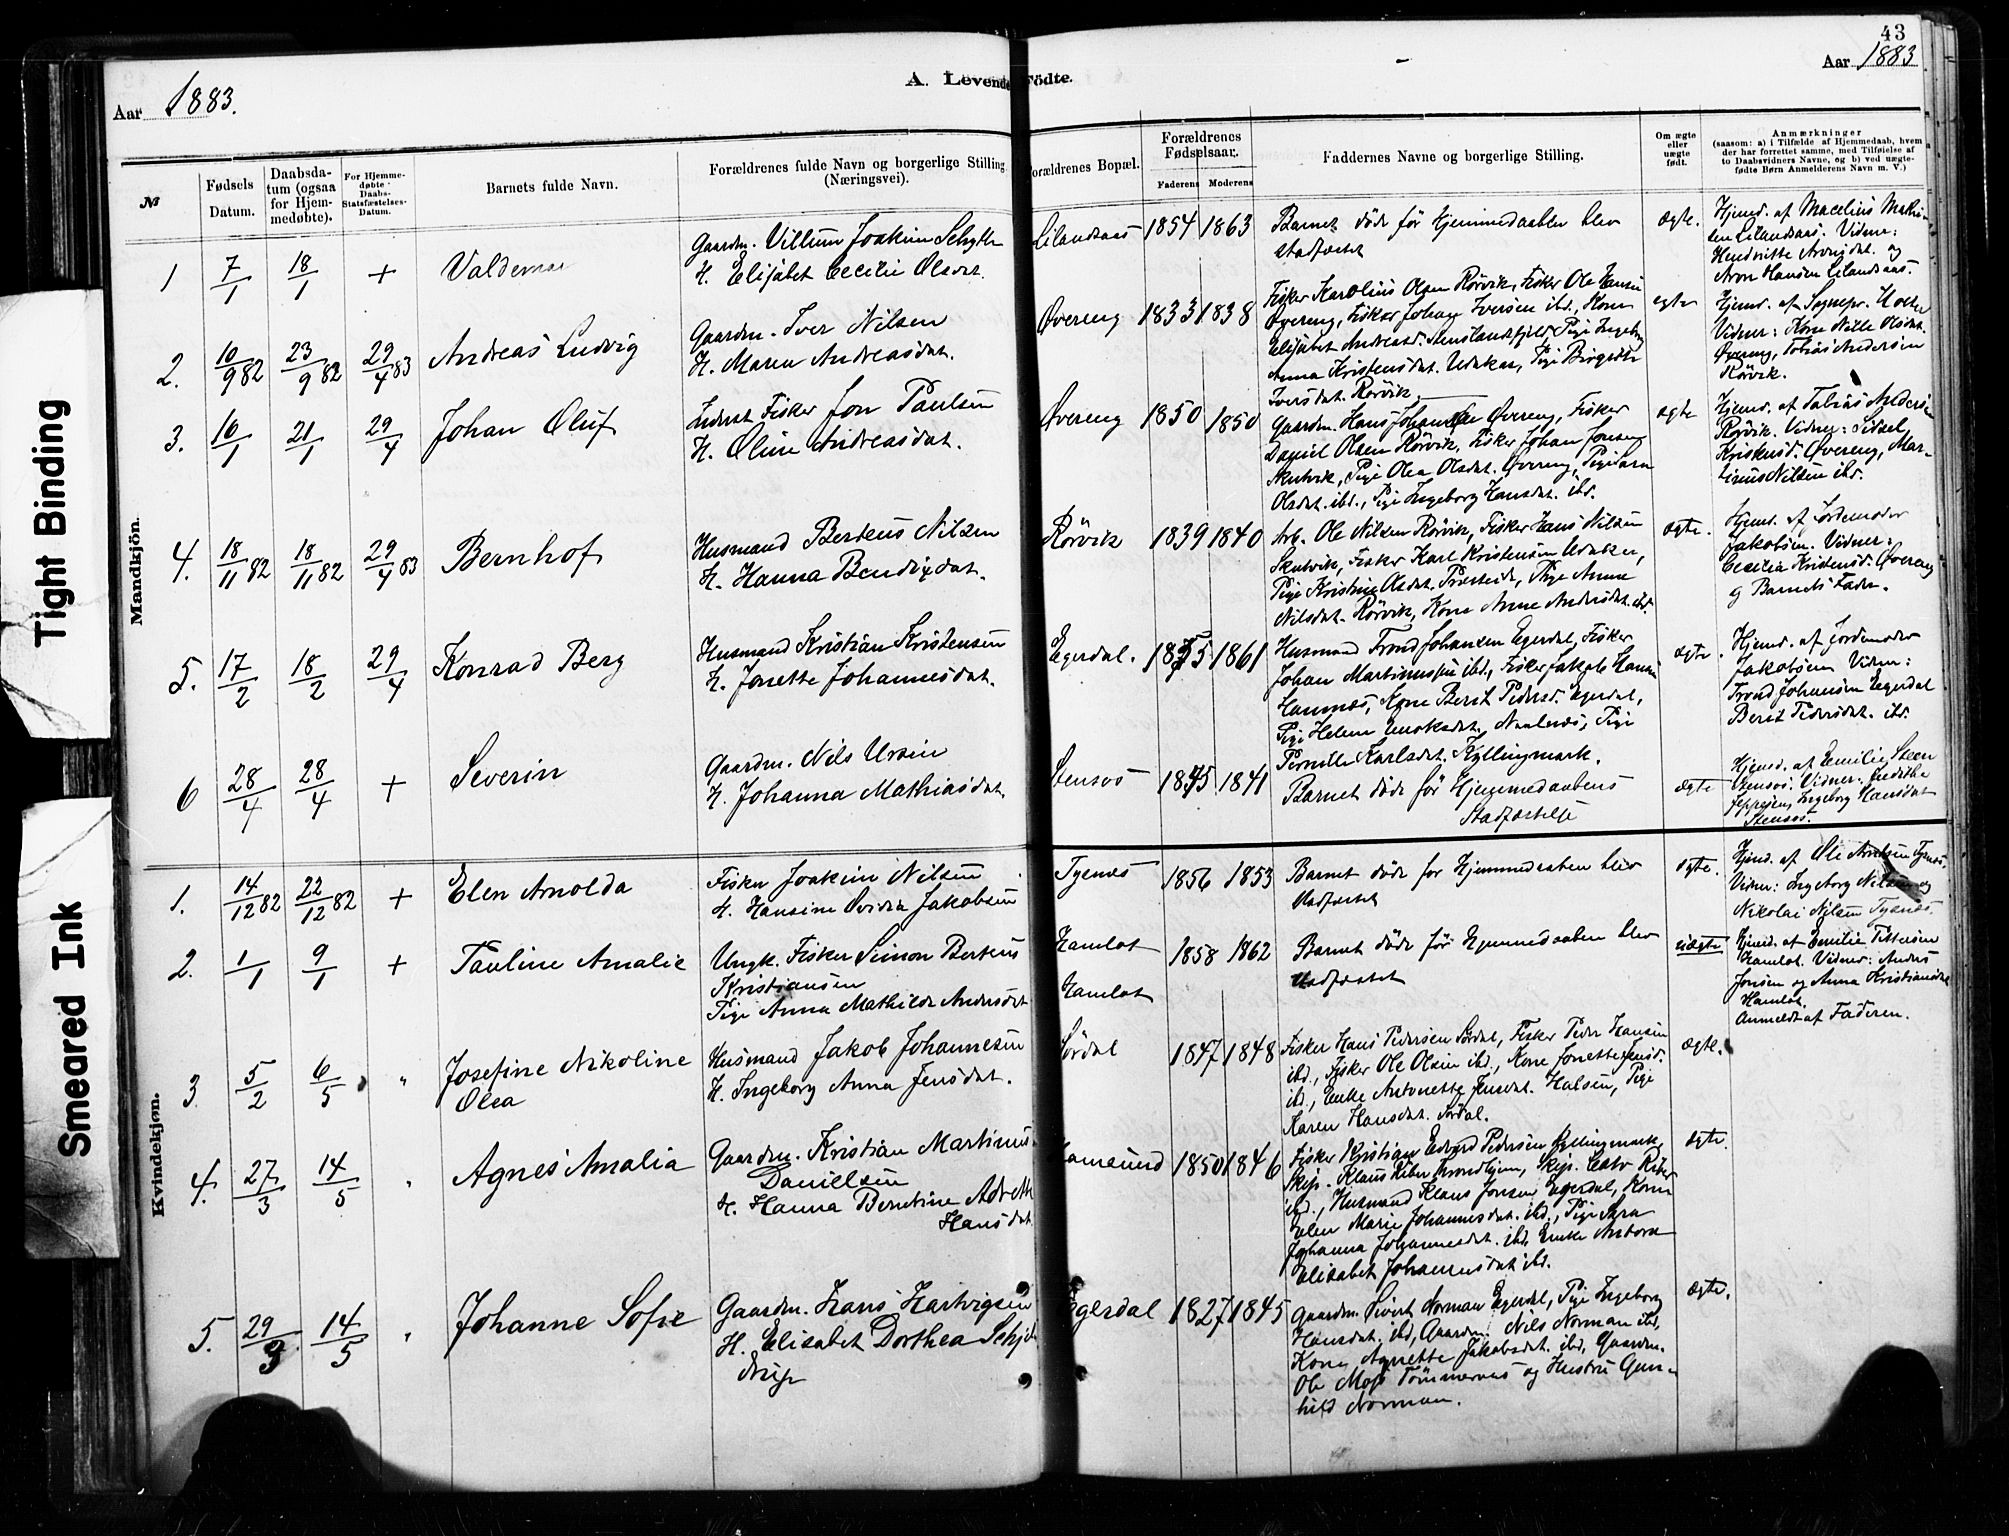 43
Aar 1883.
A. Levende Födte.
Aar 1883
№
Fødsels Datum.
Daabsdatum (ogsaa for Hjemmedøbte).
For Hjemmedøbte Daabs-Statsfæstelses-Datum.
Barnets fulde Navn.
Forældrenes fulde Navn og borgerlige Stilling (Næringsvei).
Forældrenes Bopæl.
Forældrenes Fødselsaar.
Faderens
Moderens
Faddernes Navne og borgerlige Stilling.
Om ægte eller uægte født.
Anmærkninger
(saasom: a) i Tilfælde af Hjemmedaab, hvem
der har forrettet samme, med Tilføielse af
to Daabsvidners Navne, og b) ved uægte-
fødte Børn Anmelderens Navn m. V.)
Tight Binding
Smeared Ink
Mandkjön.
1 7/1 18/1 + Valdemar
Gaardm. Villum Joakim Schytte
H. Elisabet Cecilie Olsdat.
Lilandsaas 1854 1863
Barnet døde før Hjemmedaaben blev
stadfæstet
ægte.
Hjemd. af Macelius Mathi
sen Lilandsaas. Vidner:
og
Aron Hansen Lilandsaas.
2. 10/9 82 23/9 82 29/4 83 Andreas Ludvig
Gaardm. Iver Nilsen
H. Maren Andreasdat.
Øvereng 1833 1838
Fisker Karolius Olsen Rørvik, Fisker Ole Hansen
Øvereng, Fisker Johan Iversen ibd., Kone
Elisabet Andreasd. Stenslandsfjeld, Pige Ingeborg
Anna Kristensdat. Utakar, Pige Birgitte
Iversdat. Rørvik.
egte
Hjemd. af Sognepr.
Vidner: Kone Nille Olsdat.
Øvereng, Tobias Andersen
Rørvik.
3. 16/1 21/1 29/4 Johan Oluf
Inderst Fisker Jon Paulsen
H. Oline Andreasdat.
Øvereng 1850 1850
Gaardm. Hans Johansen Øvereng, Fisker
Daniel Olsen Rørvik, Fisker Johan Jonsen
Skutvik, Pige Olea Olsdat. Øvereng, Pige Sara
Olsdat. ibd., Pige Ingeborg Hansdat. ibd.
ægte
Hjemd. af Tobias Andersen
Rørvik. Vidner: Sidsel
Kristensd. Øvereng, Mar-
tinus Nilsen ibd.
4. 18/11 82 18/11 82 29/4 83 Bernhof
Husmand Berteus Nilsen
H. Hanna Bendixdat.
Rörvik 1839 1840
Arb. Ole Nilsen Rørvik, Fisker Hans Nilsen
Skutvik, Fisker Karl Kristensen Utakar,
Pige Kristine Olsdat. Presteide, Pige Anna
Nilsdat. Rørvik, Kone Anne Andersdat. ibd.
ægte.
Hjemd. af Jordemoder
Jakobsen. Vidner:
Cecilia Kristensd. Øvereng
og Barnets Fader.
5. 17/2 18/2 29/4 Konrad Berg
Husmand Kristian Kristensen
H. Jonette Johannesdat.
Egerdal. 1855 1861
Husmand Trond Johansen Egerdal, Fisker
Johan Martinussen ibd., Fisker Jakob Hansen
Hamnæs, Kone Berit Pedersd. Egerdal,
Pige Helene Enoksdat. Naalnæs, Pige
Pernille Karlsdat. Kyllingmark.
ægte.
Hjemd. af Jordemoder
Jakobsen Vidner:
Trond Johansen Egerdal
Berit Pedersdat. ibd.
6 28/4 28/4 + Severin
Gaardm. Nils Ursin
H. Johanna Mathiasdat.
Stensøs 1845 1841
Barnet døde før Hjemmedaabens
Stadfæstelse
ægte
Hjemd. af Emilie Steen
Stensøs. Vidner:
Jeppesen, Ingeborg Hansdat
Stensøs.
Kvindekjøn.
1. 14/12 82 22/12 82 + Elen Arnolda
Fisker Joakim Nilsen
H. Hansine Ovidia Jakobsen
Tysnæs 1856 1853
Barnet døde før Hjemmedaaben blev
stadfæstet
ægte.
Hjemd. af Ole Arntsen Tysnæs.
Vidner: Ingeborg Nilsen og
Nikolai Nilsen Tysnæs.
2. 1/1 9/1 + Pauline Amalie
Ungk. Fisker Simon Berteus
Kristiansen
Pige Anna Mathilde Andersdat
Hamlot
Hamlot
1858 1862
Barnet døde før Hjemmedaaben blev
stadfæstet
uægte
Hjemd. af Emilie Pettersen
Hamlot. Vidner: Anders
Jonsen og Anna Kristiansdat
Hamlot.
Anmeldt af Faderen.
3 5/2 6/5 " Josefine Nikoline
Olea
Husmand Jakob Johannesen
H. Ingeborg Anna Jensdat.
Sørdal 1847 1848
Fisker Hans Pedersen Sørdal, Fisker Peder Hansen
ibd., Fisker Ole Olsen ibd., Kone Jonette Jensd.
ibd., Enke Antonette Jensdat. Halsen, Pige
Karen Hansdat. Sørdal.
ægte.
4. 27/3 14/5 " Agnes Amalia
Gaardm. Kristian Martinus
Danielsen
H. Hanna Berntine
Hansdat
Hamsund 1850 1846
Fisker Kristian Edvard Pedersen Kyllingmark,
Skip. Klaus Trondhjem, Skip.
ibd., Husmand Klaus Jonsen Egerdal, Kone
Elen Marie Johannesdat. ibd., Pige Sara
Johanna Johannesdat. ibd. Enke
Elisabet Johannesdat ibd.
ægte.
5. 29/3 14/5 " Johanne Sofie
Gaardm. Hans Hartvigsen
H. Elisabet Dorthea Schjel
drup
Egerdal 1827 1845
Gaardm. Sivert Norman Egerdal, Pige Ingeborg
Hansdat. ibd, Gaardm. Nils Norman ibd,
Kone Agnette Jakobsdat. ibd, Gaardm.
Ole Moss Tömmernæs og Hustru Gun-
hild Norman.
ægte.